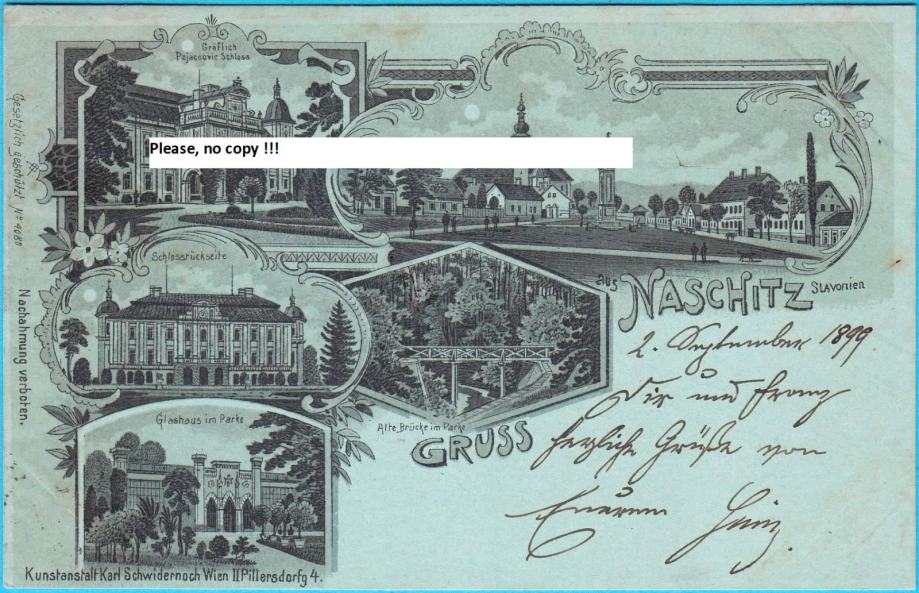 Gräflich
Pejacsevic Schloss
Please, no copy !!!
Gesetzlich geschützt No 4080
Nachahmung verboten.
Schlossrückseite
aus NASCHITZ Slavonien
2. September 1899
Dir und Franz
herzliche Grüße von
Eurem
Alte Brücke im Parke
GRUSS
Glashaus im Parke
Kunstanstalt Karl Schwidernoch Wien II Pillersdorfg 4.